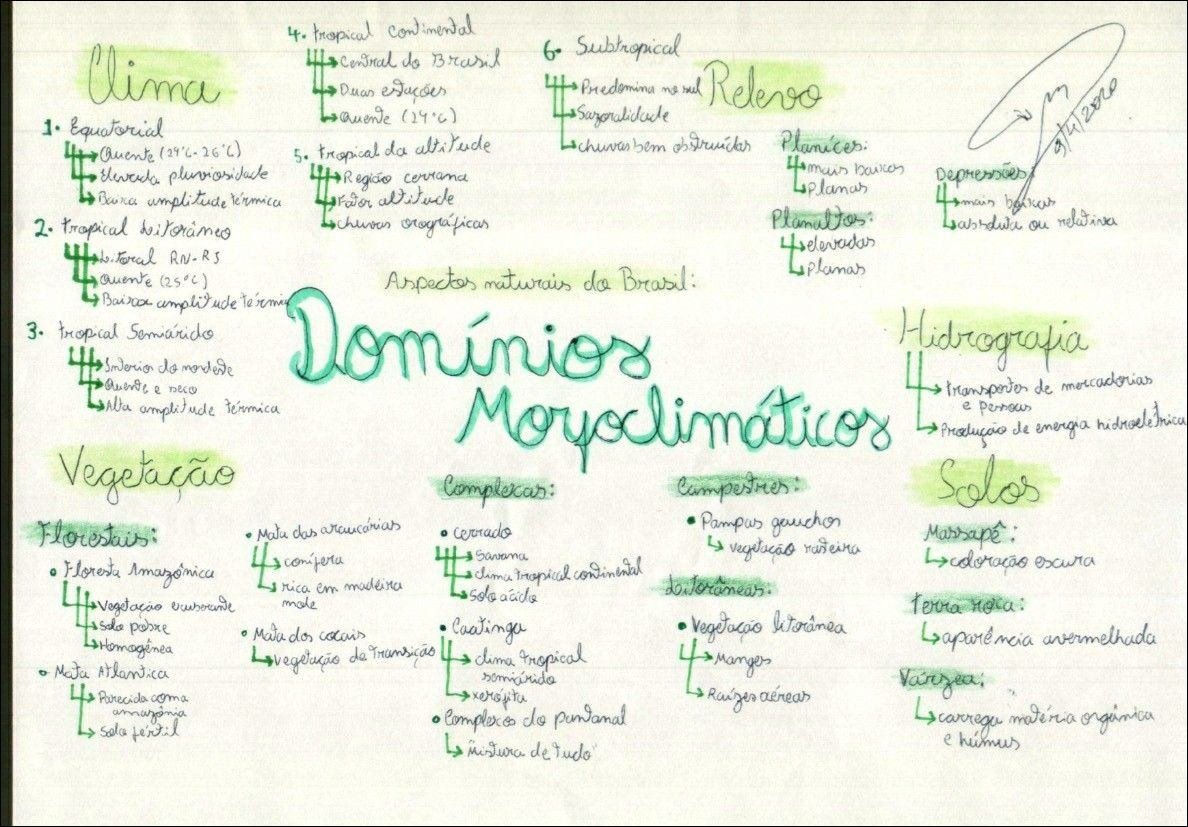 Clima
1. Equatorial
Quente (24°C-26°C)
Elevada pluviosidade
Baixa amplitude térmica
2. Tropical Litorâneo
Litoral RN-RJ
Quente (25°C)
Baixa amplitude térmic
3. Tropical Semiárido
Interior do nordeste
Quente e seco
Alta amplitude térmica
4. Tropical continental
Central do Brasil
Duas estações
Quente (24°C)
5. Tropical da altitude
Região cerrana
Fator altitude
chuvas orográficas
6. Subtropical
Predomina no sul
Sazoralidade
chuvas bem obstruídas
Relevo
Planíces:
mais baixas
Planas
Planaltos:
elevadas
Planas
Depressões:
mais baixas
absoluta ou relativa
9/4/2020
Aspectos naturais do Brasil:
Domínios
Morfoclimáticos
Hidrografia
Transportes de mercadorias
e pessoas
Produção de energia hidroelétrica
Vegetação
Florestais:
Floresta Amazônica
Vegetação exuberante
Solo pobre
Homogênea
Mata Atlantica
Parecida com a
amazônia
Solo fértil
Mata das araucárias
conífera
rica em madeira
mole
Mata dos cocais
vegetação de transição
Complexas:
cerrado
Savana
clima tropical continental
Solo ácido
Caatinga
clima tropical
semiárido
xerófita
Complexos do pantanal
mistura de tudo
Campestres:
Pampas gauchos
vegetação rasteira
Litorâneas:
Vegetação litorânea
Manges
Raízes aéreas
Solos
Massapê:
coloração escura
Terra roxa:
aparência avermelhada
Várzea:
carrega matéria orgânica
e húmus